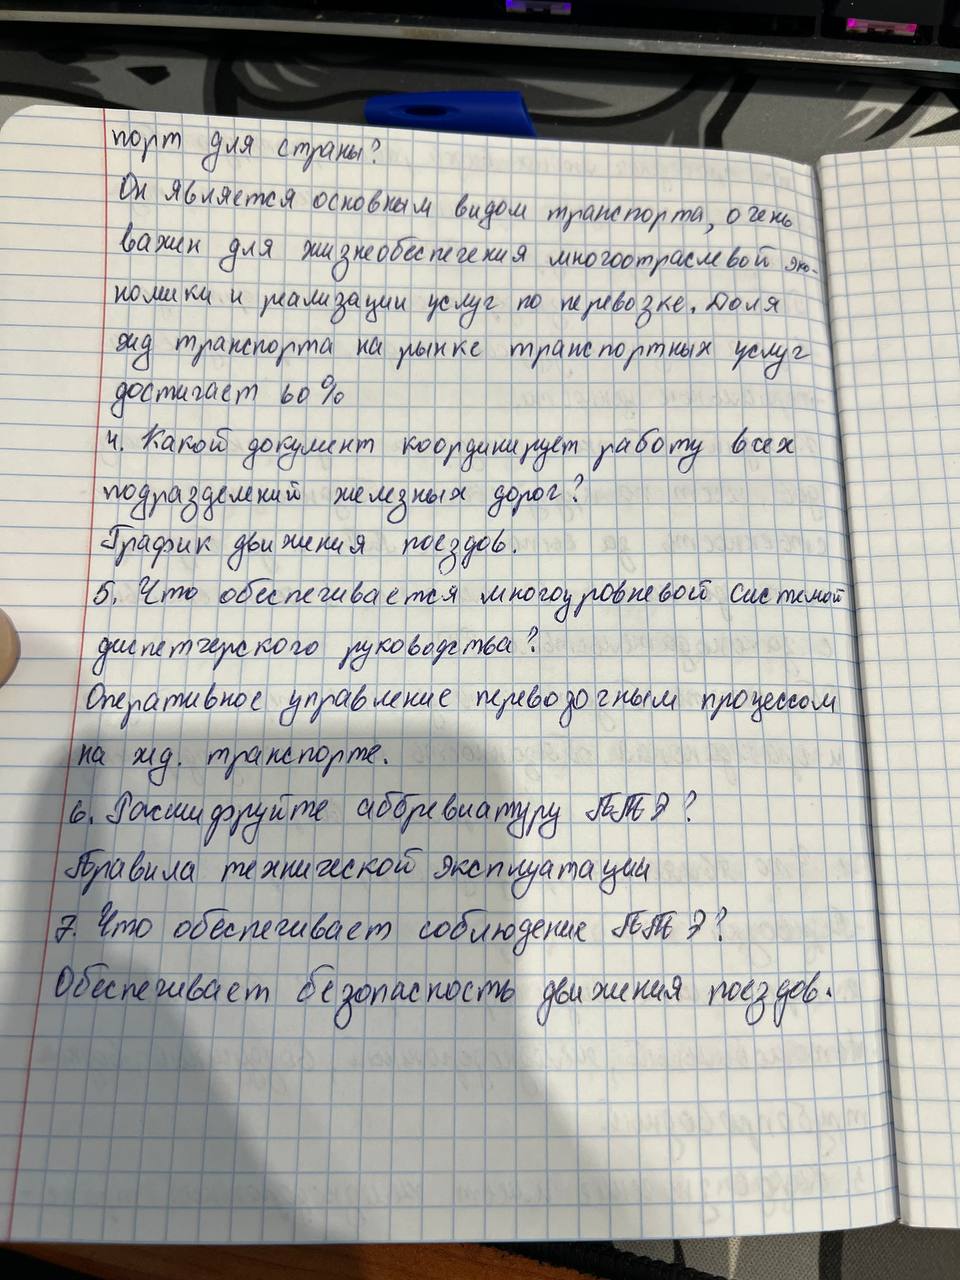 порт для страны?
Он является основным видом транспорта, очень
важен для жизнеобеспечения многоотраслевой эко-
номики и реализации услуг по перевозке. Доля
жд транспорта на рынке транспортных услуг
достигает 60%
4. Какой документ координирует работу всех
подразделений железных дорог?
График движения поездов.
5. Что обеспечивается многоуровневой системой
диспетчерского руководства?
Оперативное управление перевозочным процессом
на жд. транспорте.
6. Расшифруйте аббревиатуру ПТЭ?
Правила технической эксплуатации
7. Что обеспечивает соблюдение ПТЭ?
Обеспечивает безопасность движения поездов.